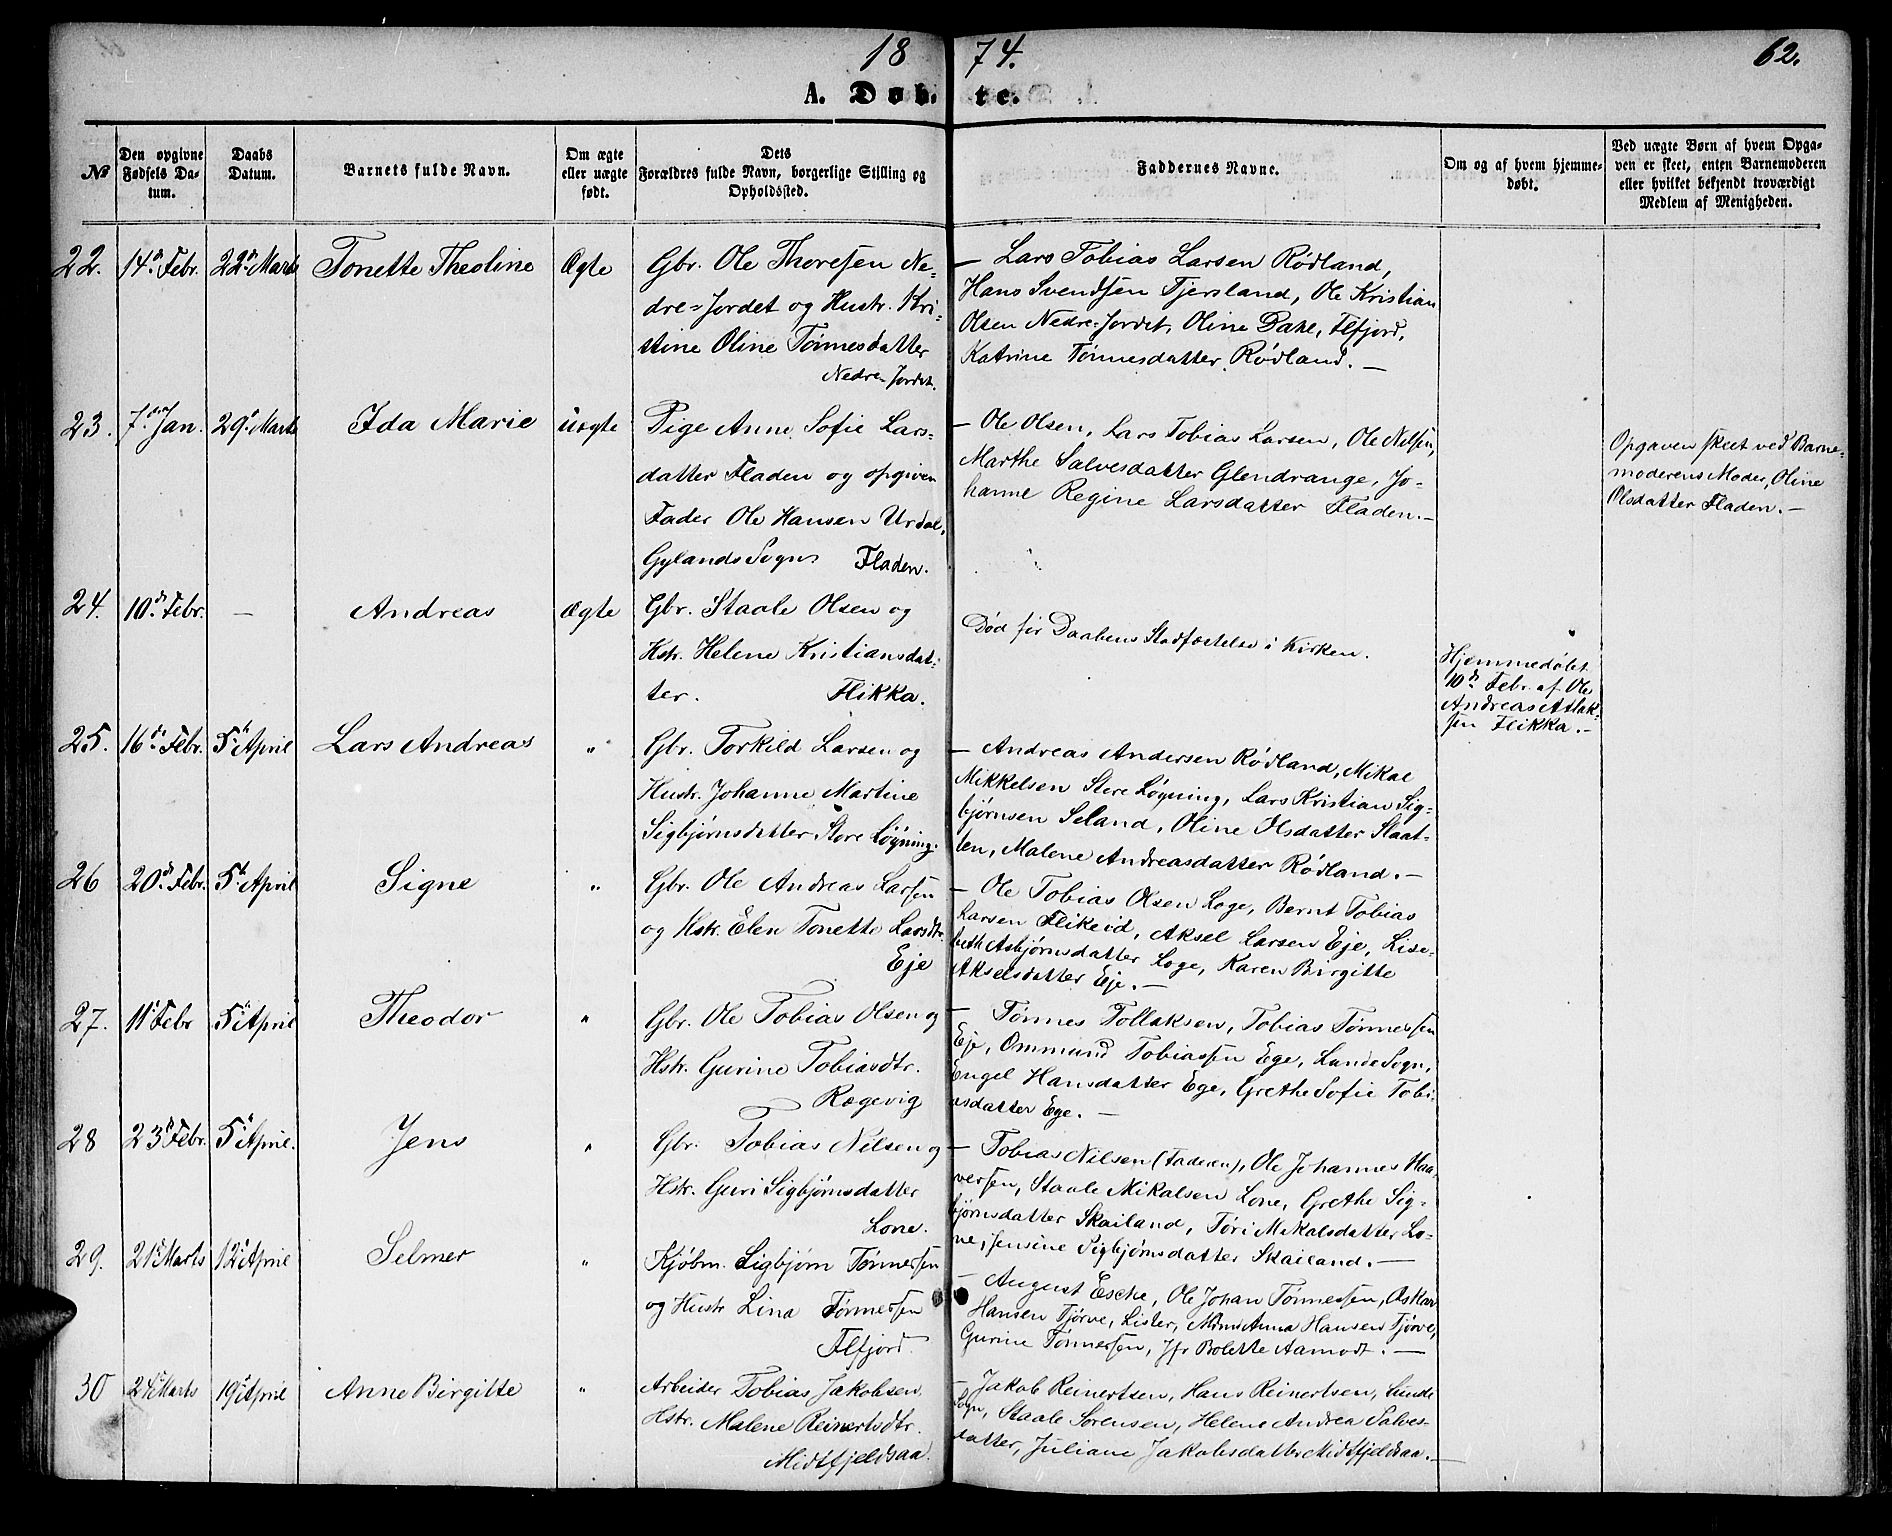 18 74. 62.
A. Døb- te.
No
Den opgivne Fødsels Datum.
Daabs Datum.
Barnets fulde Navn.
Om ægte eller uægte født.
Dets Forældres fulde Navn, borgerlige Stilling og Opholdssted.
Faddernes Navne.
Om og af hvem hjemmedøbt.
Ved uægte Børn af hvem Opga-
ven er skeet, enten Barnemoderen
eller hvilket bekjendt troværdigt
Medlem af Menigheden.
22. 14de Febr. 22de Marts Tonette Theoline Ægte
Gbr. Ole Thoresen Ne-
dre-Jordet og Hustr. Kri-
stine Oline Tønnesdatter
Nedre Jordet.
— Lars Tobias Larsen Rødland,
Hans Svendsen Tjersland, Ole Kristian
Olsen Nedre-Jordet, Oline Dahl, Flfjord,
Katrine Tønnesdatter Rødland. —
23. 7de Jan. 29de Marts Ida Marie uægte
Pige Anne Sofie Lars-
datter Fladen og opgiven
Fader Ole Hansen Urdal,
Gylands Sogn Fladen.
— Ole Olsen, Lars Tobias Larsen, Ole Nilsen,
Marthe Salvesdatter Glendrange, Jo-
hanne Regine Larsdatter Fladen. —
Opgaven skeet ved Barne-
moderens Moder, Oline
Olsdatter Fladen. —
24. 10de Febr. — Andreas Ægte
Gbr. Staale Olsen og
Hstr. Helene Kristiansdat-
ter. Flikka.
Død før Daabens Stadfæstelse i Kirken.
Hjemmedøbt
10de Febr. af Ole
Andreas Atlak-
sen Flikka. —
25. 16de Febr. 5te April Lars Andreas "
Gbr. Torkild Larsen og
Hustr. Johanne Martine
Sigbjørnsdatter Store Løgning.
— Andreas Andersen Rødland, Mikal
Mikkelsen Store Løgning, Lars Kristian Sig-
bjørnsen Seland, Oline Ilsdatter Slaat-
ten, Malene Andreasdatter Rødland. —
26 20de Febr. 5te April Signe "
Gbr. Ole Andreas Larsen
og Hstr. Elen Tonette Larsdtr.
Eje
— Ole Tobias Olsen Loge, Bernt Tobias
Larsen Flikeid, Aksel Larsen Eje, Lise-
beth Asbjørnsdatter Loge, Karen Birgitte
Akselsdatter Eje. —
27. 11te Febr 5te April Theodor "
Gbr. Ole Tobias Olsen og
Hstr. Gurine Tobiasdtr.
Rægevig
— Tønnes Tollaksen, Tobias Tønnessen
Eje, Ommund Tobiassen Ege, Lunde Sogn,
Engel Hansdatter Ege, Grethe Sofie Tobi-
asdatter Ege. —
28 23de Febr. 5te April. Jens "
Gbr. Tobias Nilsen og
Hstr. Guri Sigbjørnsdatter
Lone.
— Tobias Nilsen (Faderen), Ole Johannes Haa-
versen, Staale Mikalsen Lone, Grethe Sig-
bjørnsdatter Skailand, Tøri Mikalsdatter Lo-
ne, Jensine Sigbjørnsdatter Skailand. —
29. 21de Marts 12te April Selmer "
Kjøbm. Sigbjørn Tønnessen
og Hustr Lina Tønnessen
Flfjord.
— August Esche, Ole Johan Tønnessen, Oskar
Hansen Tjørve, Lister, Mdm Anna Hansen Tjørve,
Gurine Tønnessen, Jfr Bolette Aamodt. —
30 24de Marts 19de April Anne Birgitte "
Arbeider Tobias Jakobsen
Hstr. Malene Reinertsdtr.
Midtfjeldsaa.
— Jakob Reinertsen, Hans Reinertsen, Lunde
Sogn, Staale Sørensen, Helene Andrea Salves-
datter, Juliane Jakobsdatter Midtfjeldsaa. —